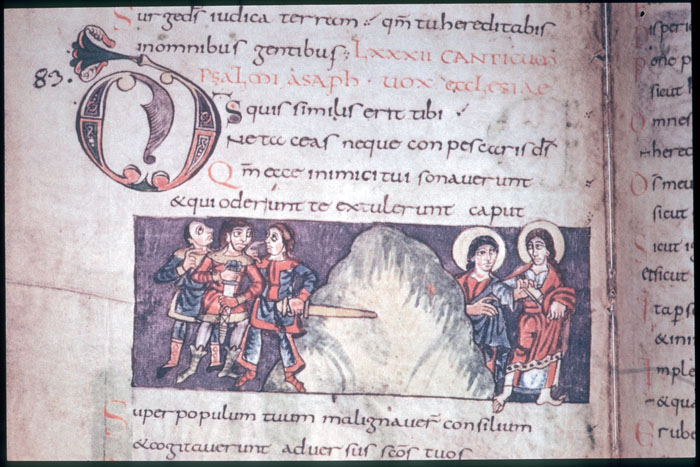 Surge ds̄ iudica terram : qm̄ tu hereditabis
inomnibus gentibus; LXXXII CANTICUM
PSALMI ASAPH · UOX ECCLESIAE
83.
DS quis similis erit tibi
Ne taceas neque conpescaris ds̄
Qm̄ ecce inimici tui sonauerunt
& qui oderunt te extulerunt caput
Super populum tuum malignauer̄ consilium
& cogitauerunt aduersus sc̄os tuos
sicut
omnes
Os meu
sicut
Sicut ig
& sicut
Ita
& ini
Imple
& qua
Erube